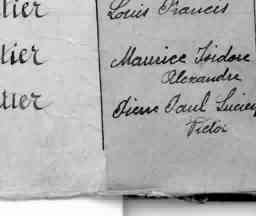 tier Louis Francis
tier Maurice Isidore
Alexandre
tier Pierre Paul Lucien
Victor